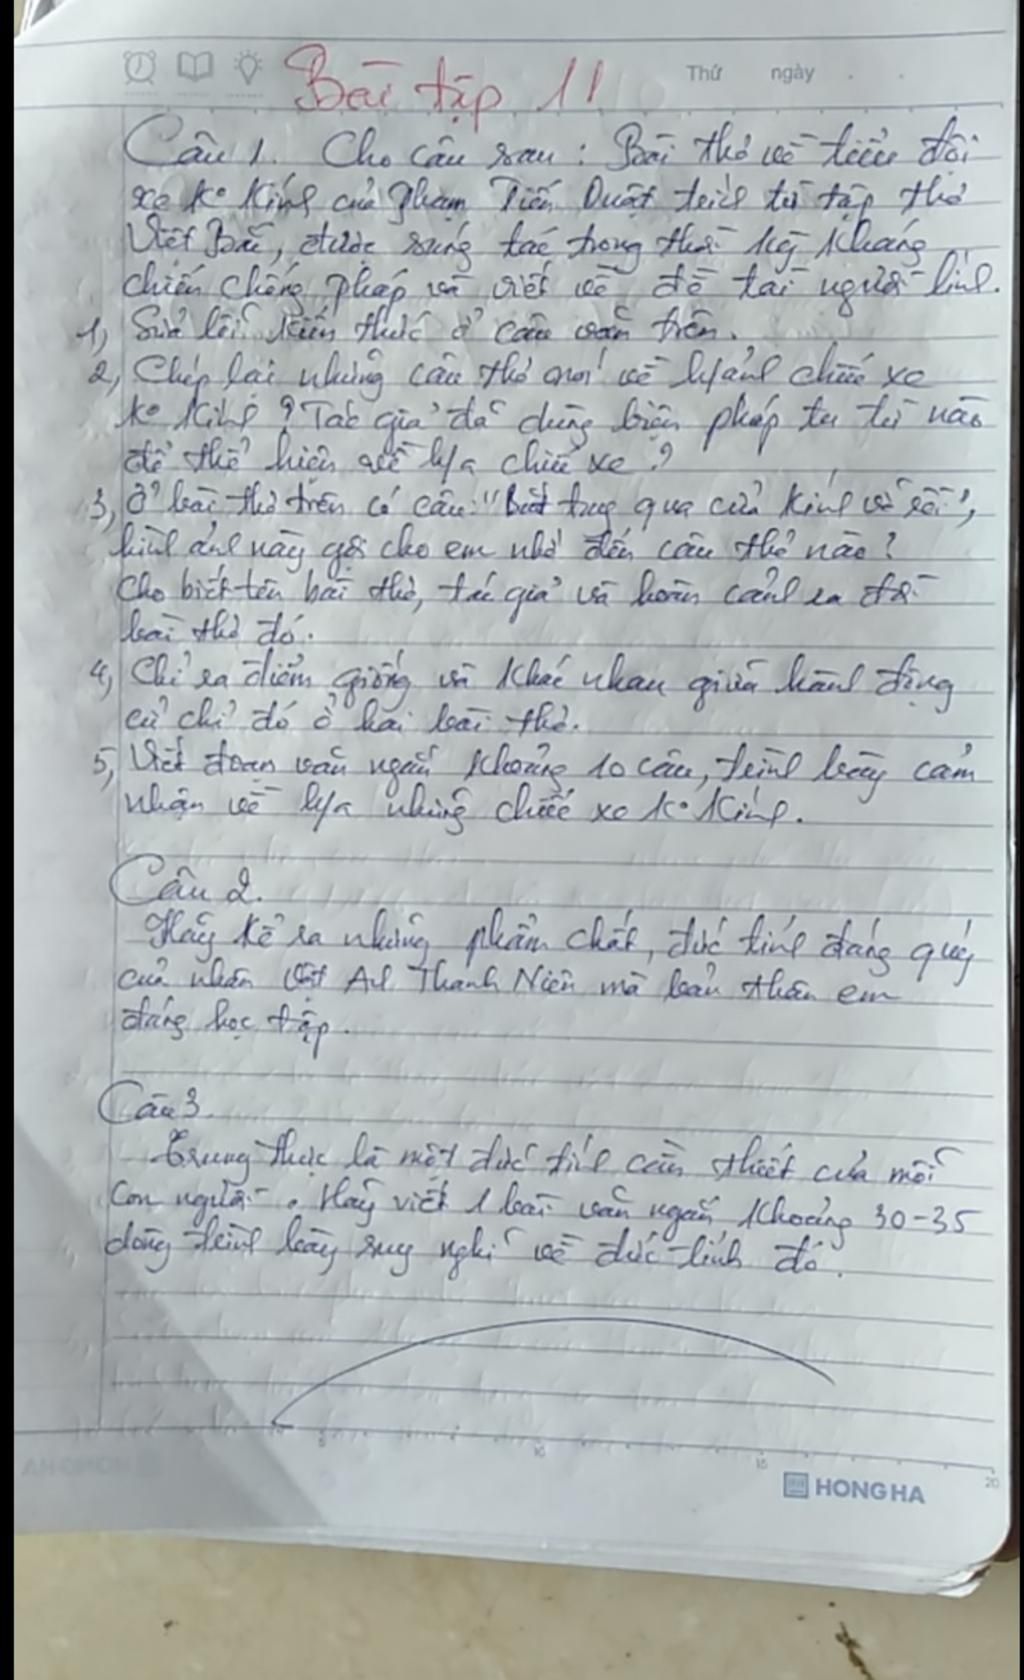 Thứ ngày
Bài tập 11
Câu 1. Cho câu sau: Bài thơ về tiểu đội
xe ko kính của Phạm Tiến Duật trích từ tập thơ
Việt Bắc, được sáng tác trong thời kỳ kháng
chiến chống Pháp và viết về đề tài người lính.
1, Sửa lỗi kiến thức ở câu văn trên.
2, Chép lại những câu thơ nói về h/ảnh chiếc xe
ko kính? Tác giả đã dùng biện pháp tu từ nào
để thể hiện về h/a chiếc xe?
3, Ở bài thơ trên có câu: "Bắt tay qua cửa kính vỡ rồi",
hình ảnh này gợi cho em nhớ đến câu thơ nào?
Cho biết tên bài thơ, tác giả và hoàn cảnh ra đời
bài thơ đó.
4, Chỉ ra điểm giống và khác nhau giữa hành động
cử chỉ đó ở hai bài thơ.
5, Viết đoạn văn ngắn khoảng 10 câu, trình bày cảm
nhận về h/a những chiếc xe ko kính.
Câu 2.
Hãy kể ra những phẩm chất, đức tính đáng quý
của nhân vật Anh Thanh Niên mà bản thân em
đáng học tập.
Câu 3.
Trung thực là một đức tính cần thiết của mỗi
con người. Hãy viết 1 bài văn ngắn khoảng 30-35
dòng trình bày suy nghĩ về đức tính đó.
5 10 15 20
HONG HA